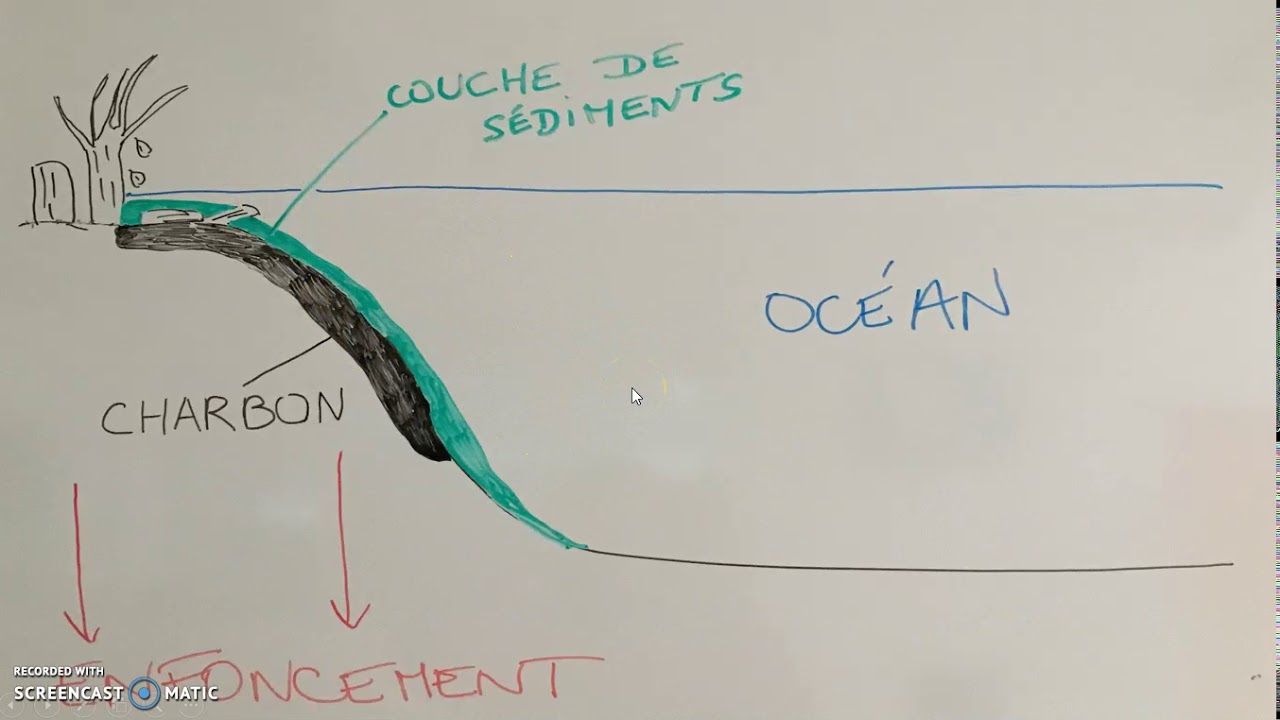 COUCHE DE
SÉDIMENTS
OCÉAN
CHARBON
ENFONCEMENT
RECORDED WITH
SCREENCAST MATIC